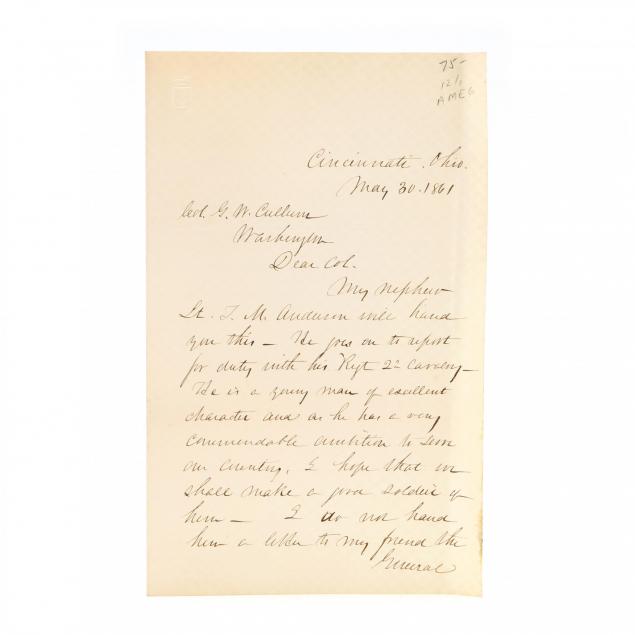 75-
12/1
AMEG
Cincinnati, Ohio.
May 30. 1861
Col. G. W. Cullum
Washington
Dear Col.
My nephew
Lt. T. M. Anderson will hand
you this — He goes on to report
for duty with his Regt 2d Cavalry —
He is a young man of excellent
character and as he has a very
commendable ambition to serve
our country, I hope that we
shall make a good soldier of
him — I do not hand
him a letter to my friend the
General